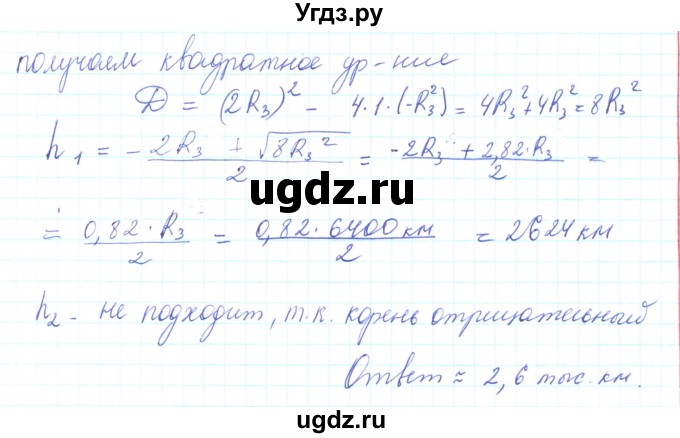 Угдз.ру
получаем квадратное ур-ние
D = (2R₃)² - 4·1·(-R₃²) = 4R₃² + 4R₃² = 8R₃²
h₁ = -2R₃ + √8R₃² / 2 = -2R₃ + 2,82·R₃ / 2 =
ugdz.ru
= 0,82·R₃ / 2 = 0,82·6400 км / 2 = 2624 км
h₂ - не подходит, т.к. корень отрицательный
Ответ ≈ 2,6 тыс. км.
ugdz.ru